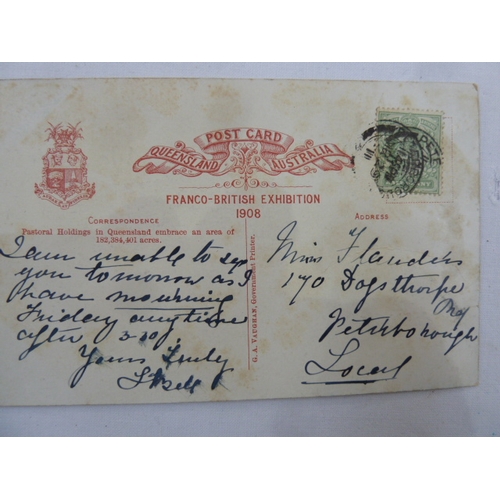 POST CARD
QUEENSLAND AUSTRALIA
FRANCO-BRITISH EXHIBITION
1908
CORRESPONDENCE
Pastoral Holdings in Queensland embrace an area of
182,384,401 acres.
I am unable to
you tomorrow as I
have mourning
Friday anytime
after 3-30
Yours Truly
G. A. VAUGHAN, Government Printer.
ADDRESS
Miss Flanders
170 Dogsthorpe
Rd
Peterborough
Local